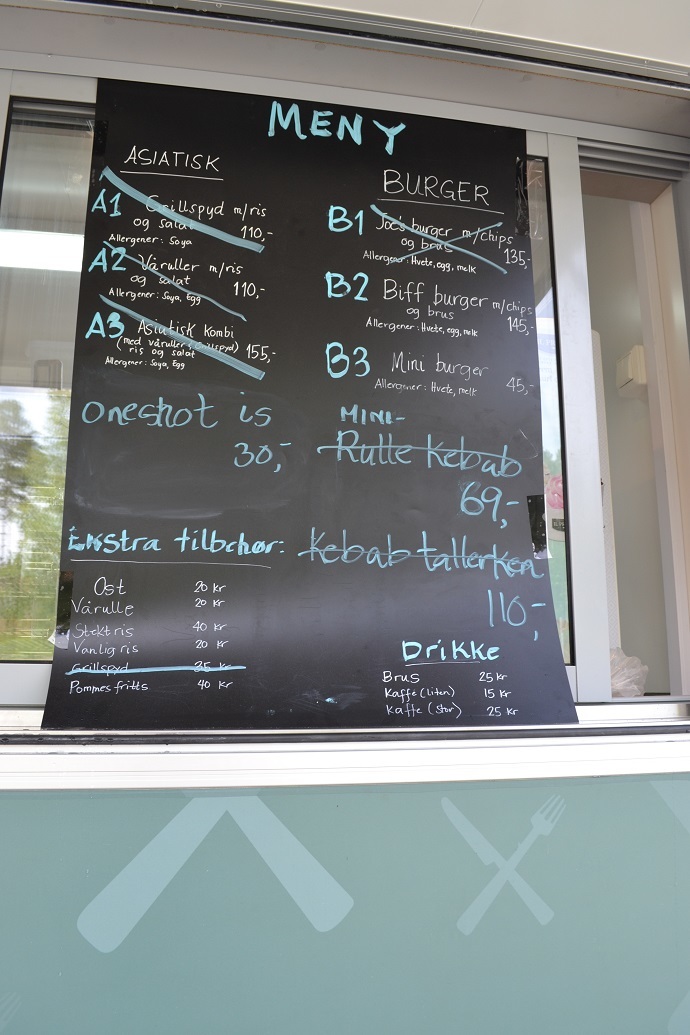 MENY
ASIATISK
A1 Grillspyd m/ris
og salat 110,-
Allergener: Soya
A2 Våruller m/ris
og salat 110,-
Allergener: Soya, Egg
A3 Asiatisk Kombi
(med våruller & Grillspyd)
ris og salat 155,-
Allergener: Soya, Egg
oneshot is
30,-
Ekstra tilbehør:
Ost 20 Kr
Vårulle 20 Kr
Stekt ris 40 Kr
Vanlig ris 20 Kr
Grillspyd 25 Kr
Pommes fritts 40 Kr
BURGER
B1 Joe's burger m/chips
og brus 135,-
Allergener: Hvete, egg, melk
B2 Biff burger m/chips
og brus 145,-
Allergener: Hvete, egg, melk
B3 Mini burger
Allergener: Hvete, melk 45,-
MINI-
Rulle Kebab
69,-
Kebab tallerken
110,-
Drikke
Brus 25 Kr
Kaffe (liten) 15 Kr
Kaffe (stor) 25 Kr